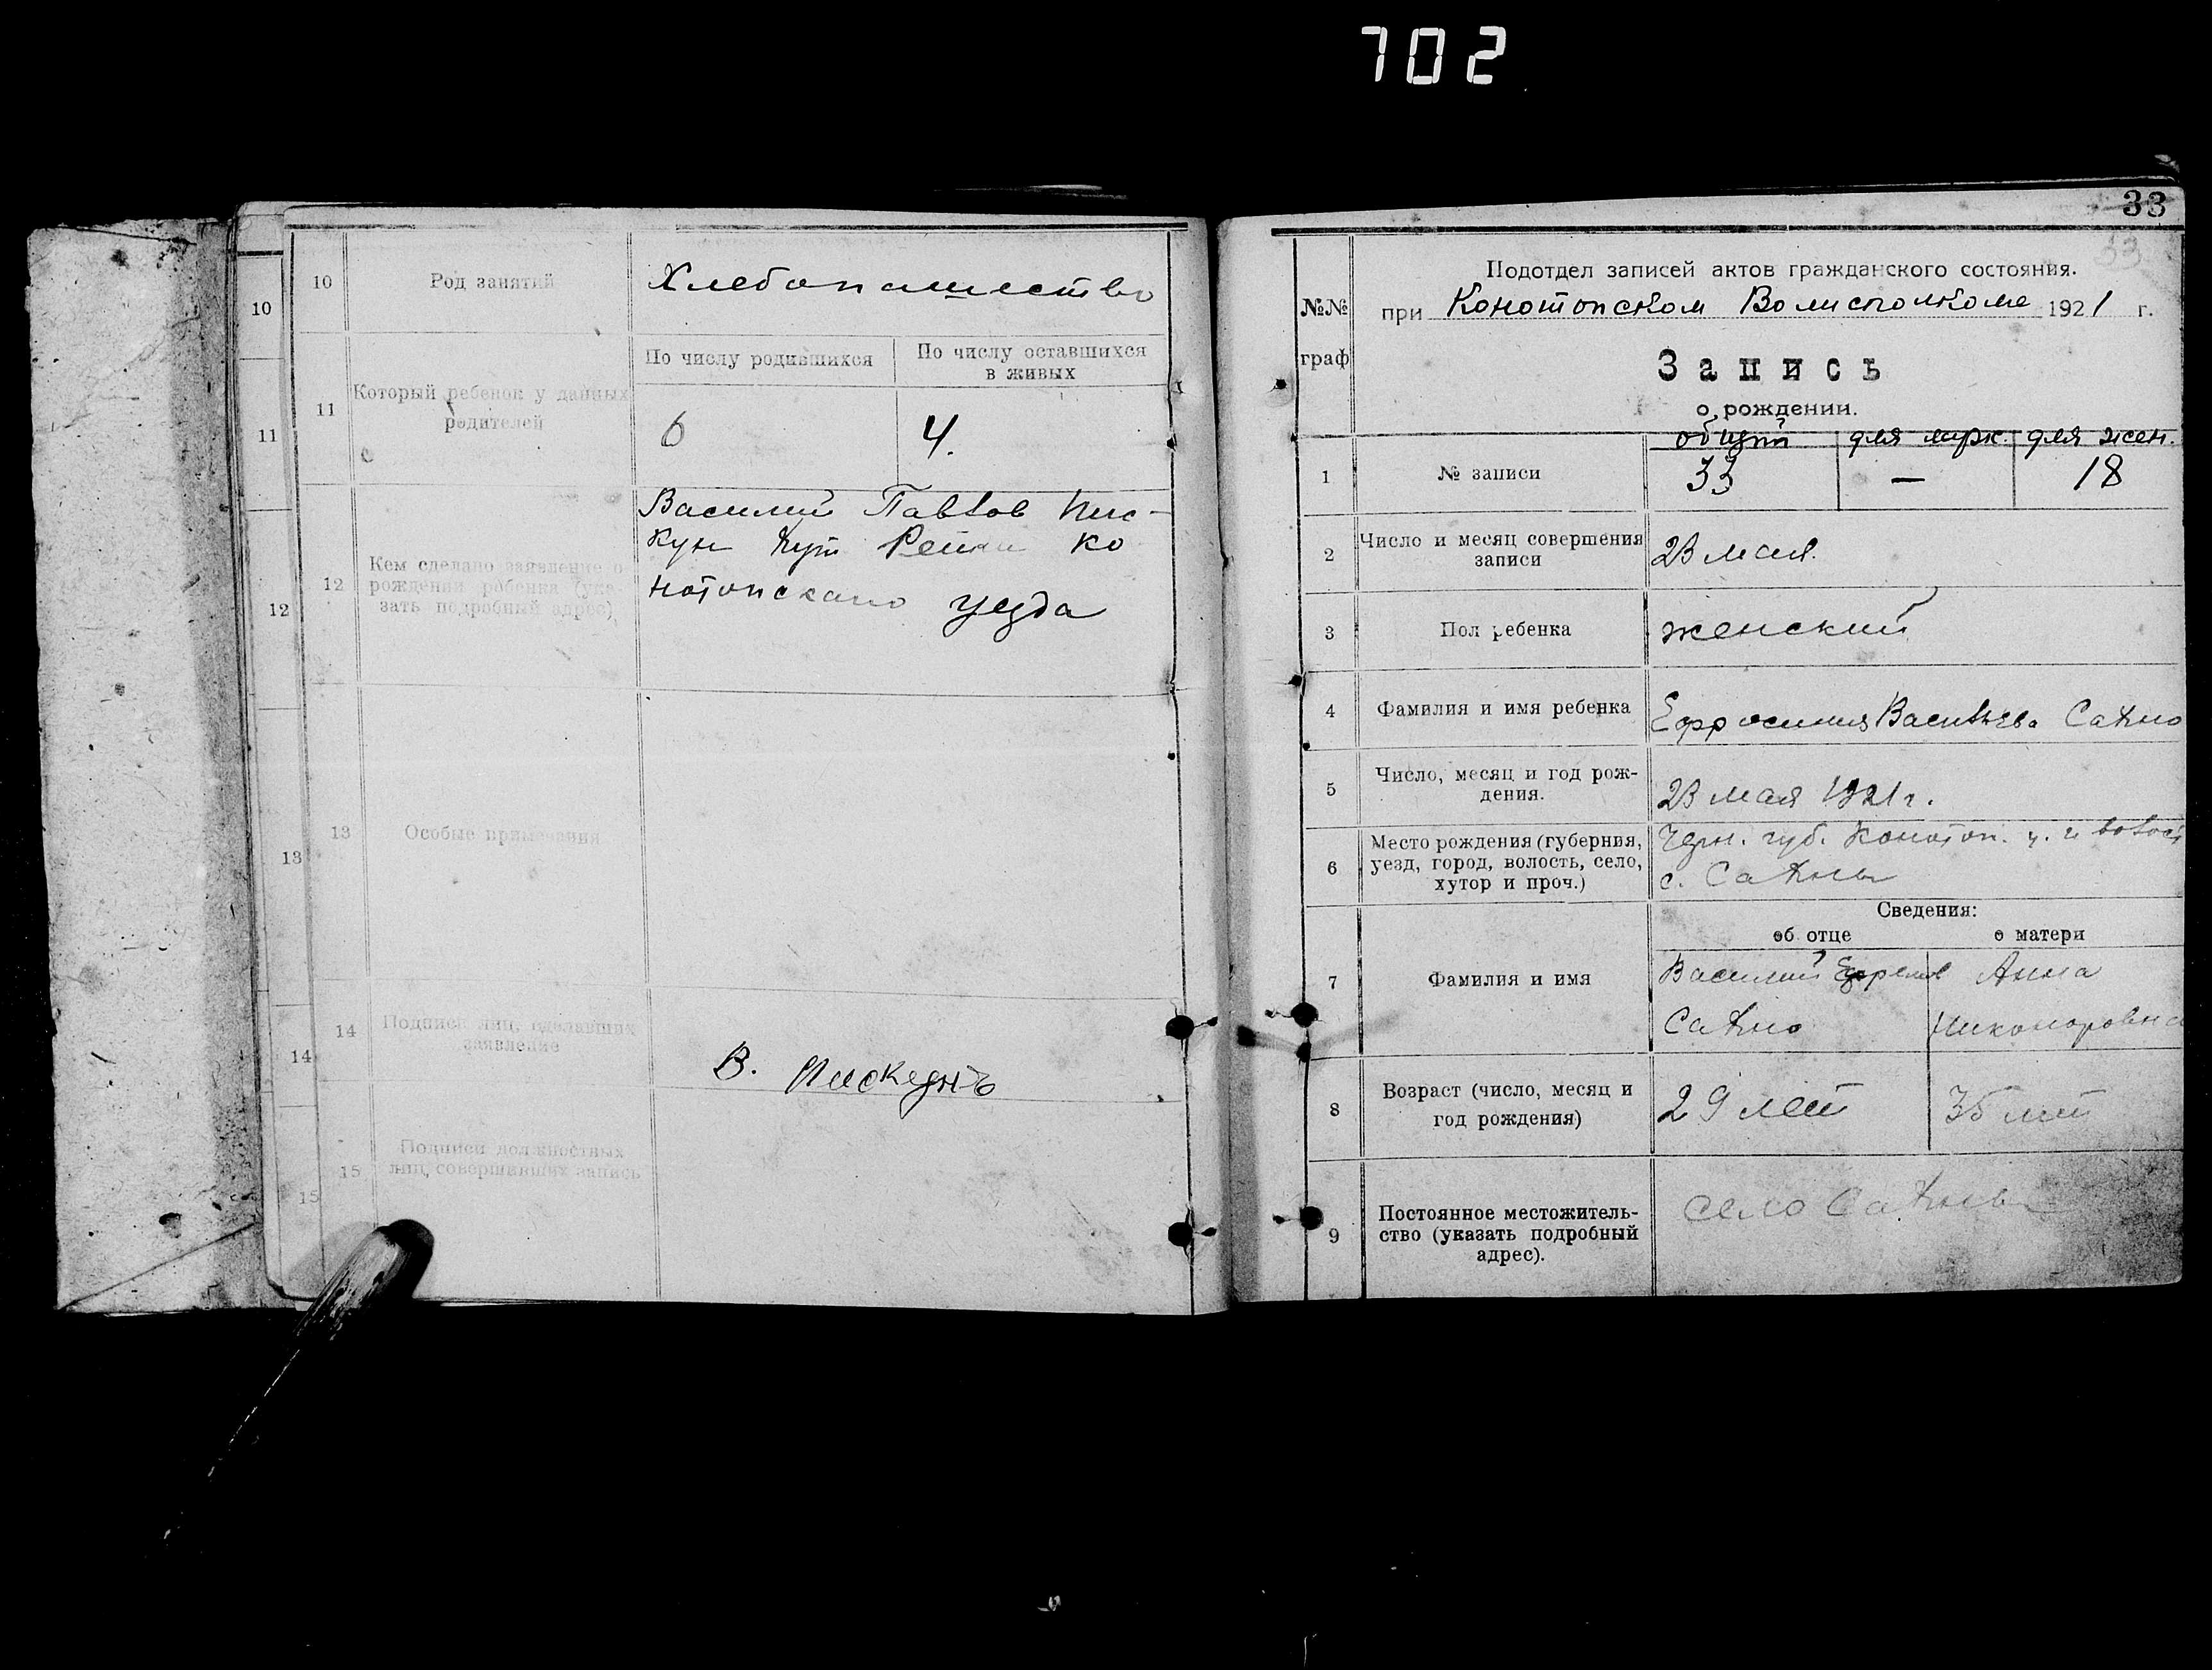 702
10
11
12
13
14
15
10
Род занятий
Хлебопашество
11
Который ребенок у данных
родителей
По числу родившихся
По числу оставшихся
в живых
6
4.
12
Кем сделано заявление о
рождении ребенка (ука-
зать подробный адрес)
Василий Павлов Пис-
кун хут Рейки Ко
нотопскаго уезда
13
Особые примечания
14
Подписи лиц, сделавших
заявление
В. Пискунъ
15
Подписи должностных
лиц, совершивших запись
33
33
№№
граф
Подотдел записей актов гражданского состояния.
при Конотопском Волисполкоме 1921 г.
Запись
о рождении.
общий для мрк. для жен.
1
№ записи
33 — 18
2
Число и месяц совершения
записи
23 мая.
3
Пол ребенка
женский
4
Фамилия и имя ребенка
Ефросиния Васильева
5
Число, месяц и год рож-
дения.
23 мая 1921 г.
6
Место рождения (губерния,
уезд, город, волость, село,
хутор и проч.)
Черн. губ. Конотоп. у. и волост
с.
Сведения:
об отце о матери
7
Фамилия и имя
Василий Ефремов Анна
Никоноровна
8
Возраст (число, месяц и
год рождения)
29 лет 35 лет
9
Постоянное местожитель-
ство (указать подробный
адрес).
село